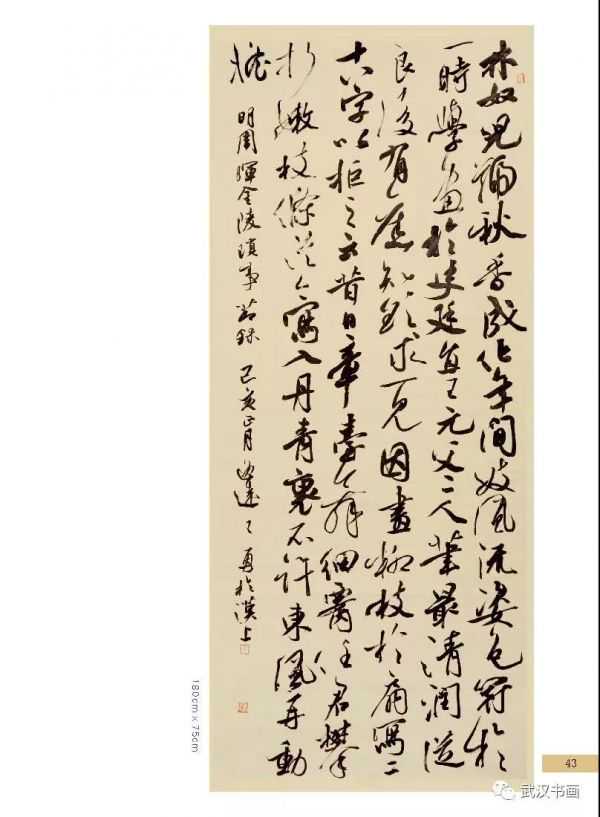 林奴兒號秋香成化年間妓風流姿色冠於
一時學畫於史廷直王元父二人筆最清潤從
良後有舊知欲求一見因畫柳枝於扇寫二
十八字以拒之云昔日章臺舞細腰任君攀
折嫩枝條從今寫入丹青裏不許東風再動
搖 明周暉金陵瑣事節錄 己亥正月 勇於漢上
180cm×75cm
43
武汉书画